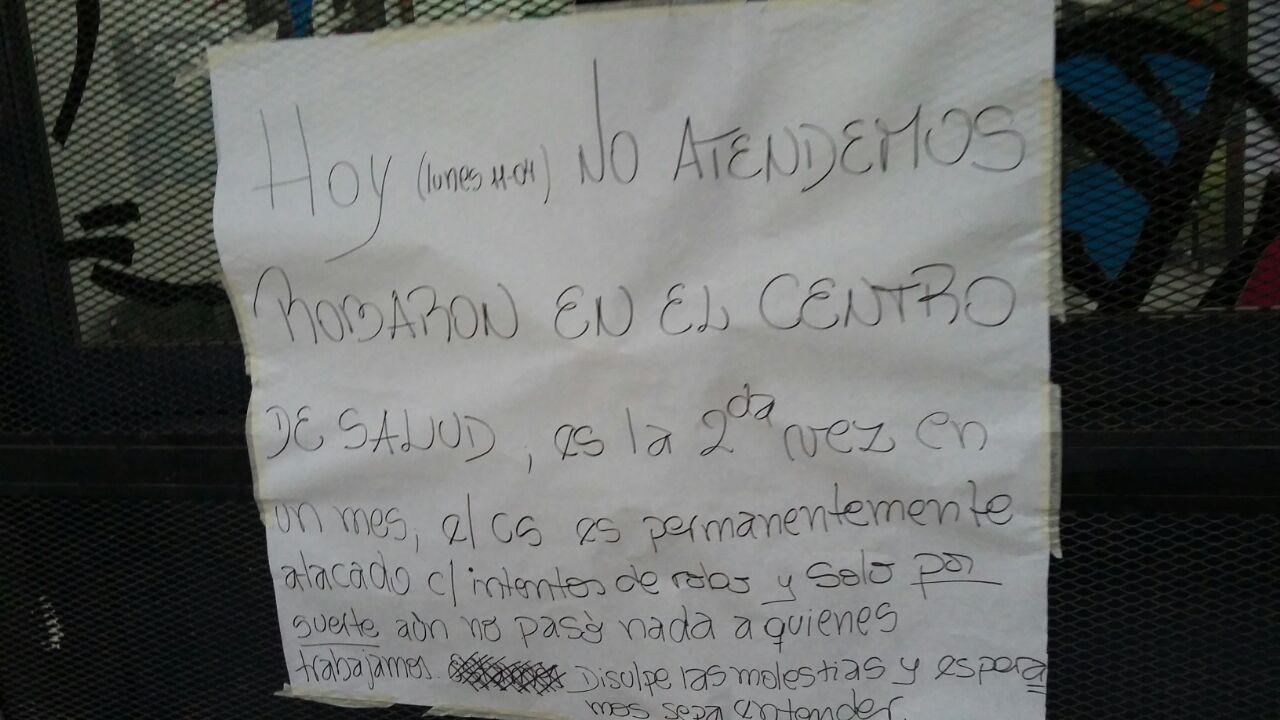 Hoy (lunes 11-04) NO ATENDEMOS
ROBARON EN EL CENTRO
DE SALUD, es la 2da vez en
un mes, el CS es permanentemente
atacado c/ intentos de robo y solo por
suerte aún no pasó nada a quienes
trabajamos. Disulpe las molestias y espera
mos sepa entender.